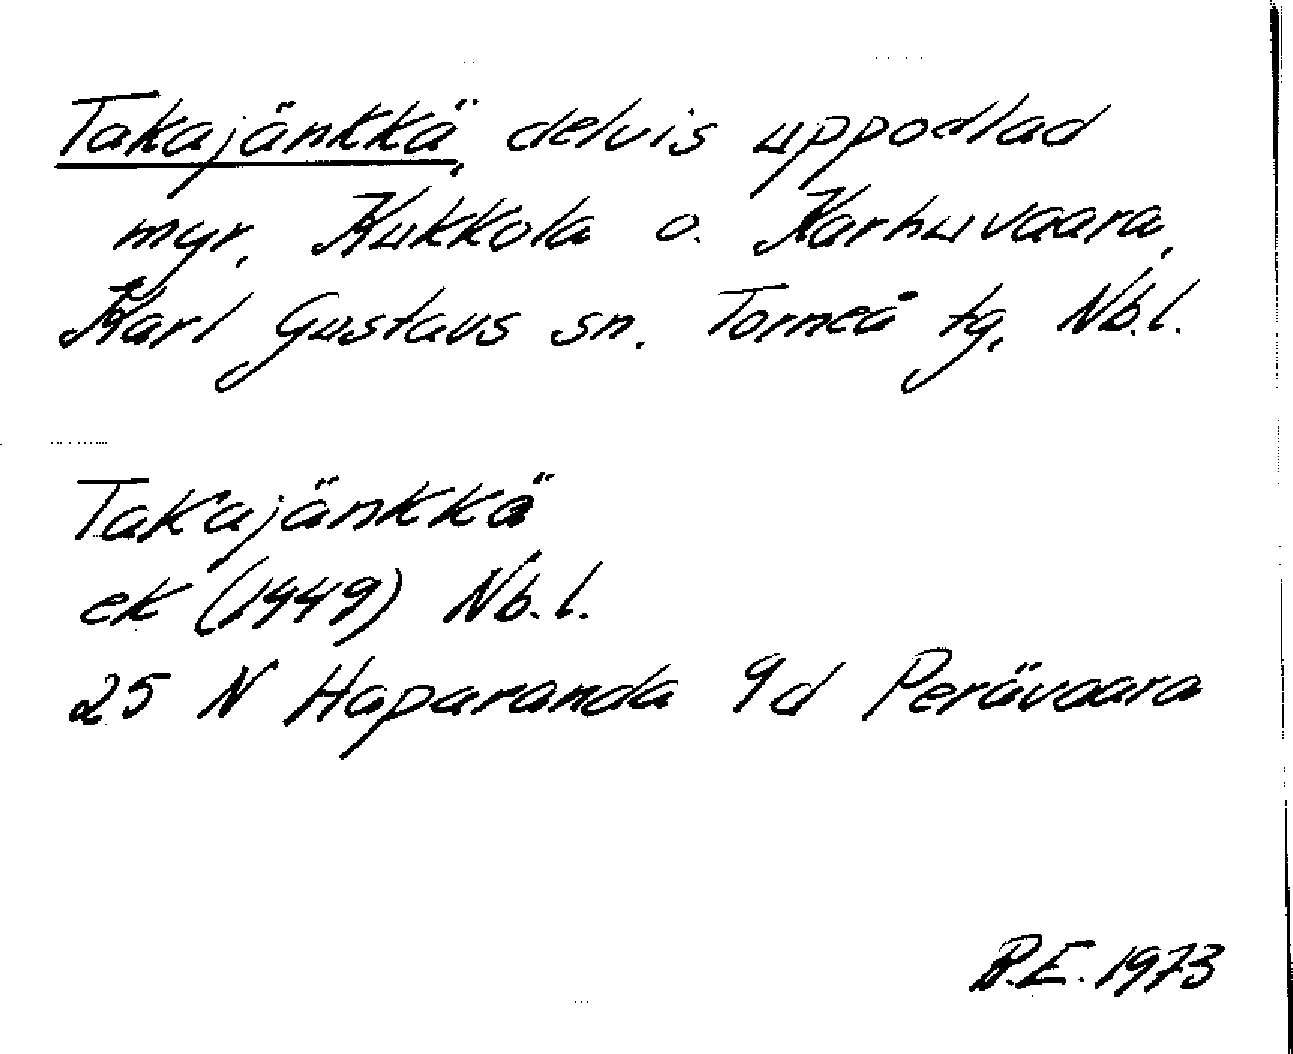 Takajänkkä, delvis uppodlad
myr, Kukkola o. Karhuvaara,
Karl Gustavs sn, Torneå tg, Nb.l.
Takajänkkä
ek (1949) Nb.l.
25 N Haparanda 9d Perävaara
B.E. 1973